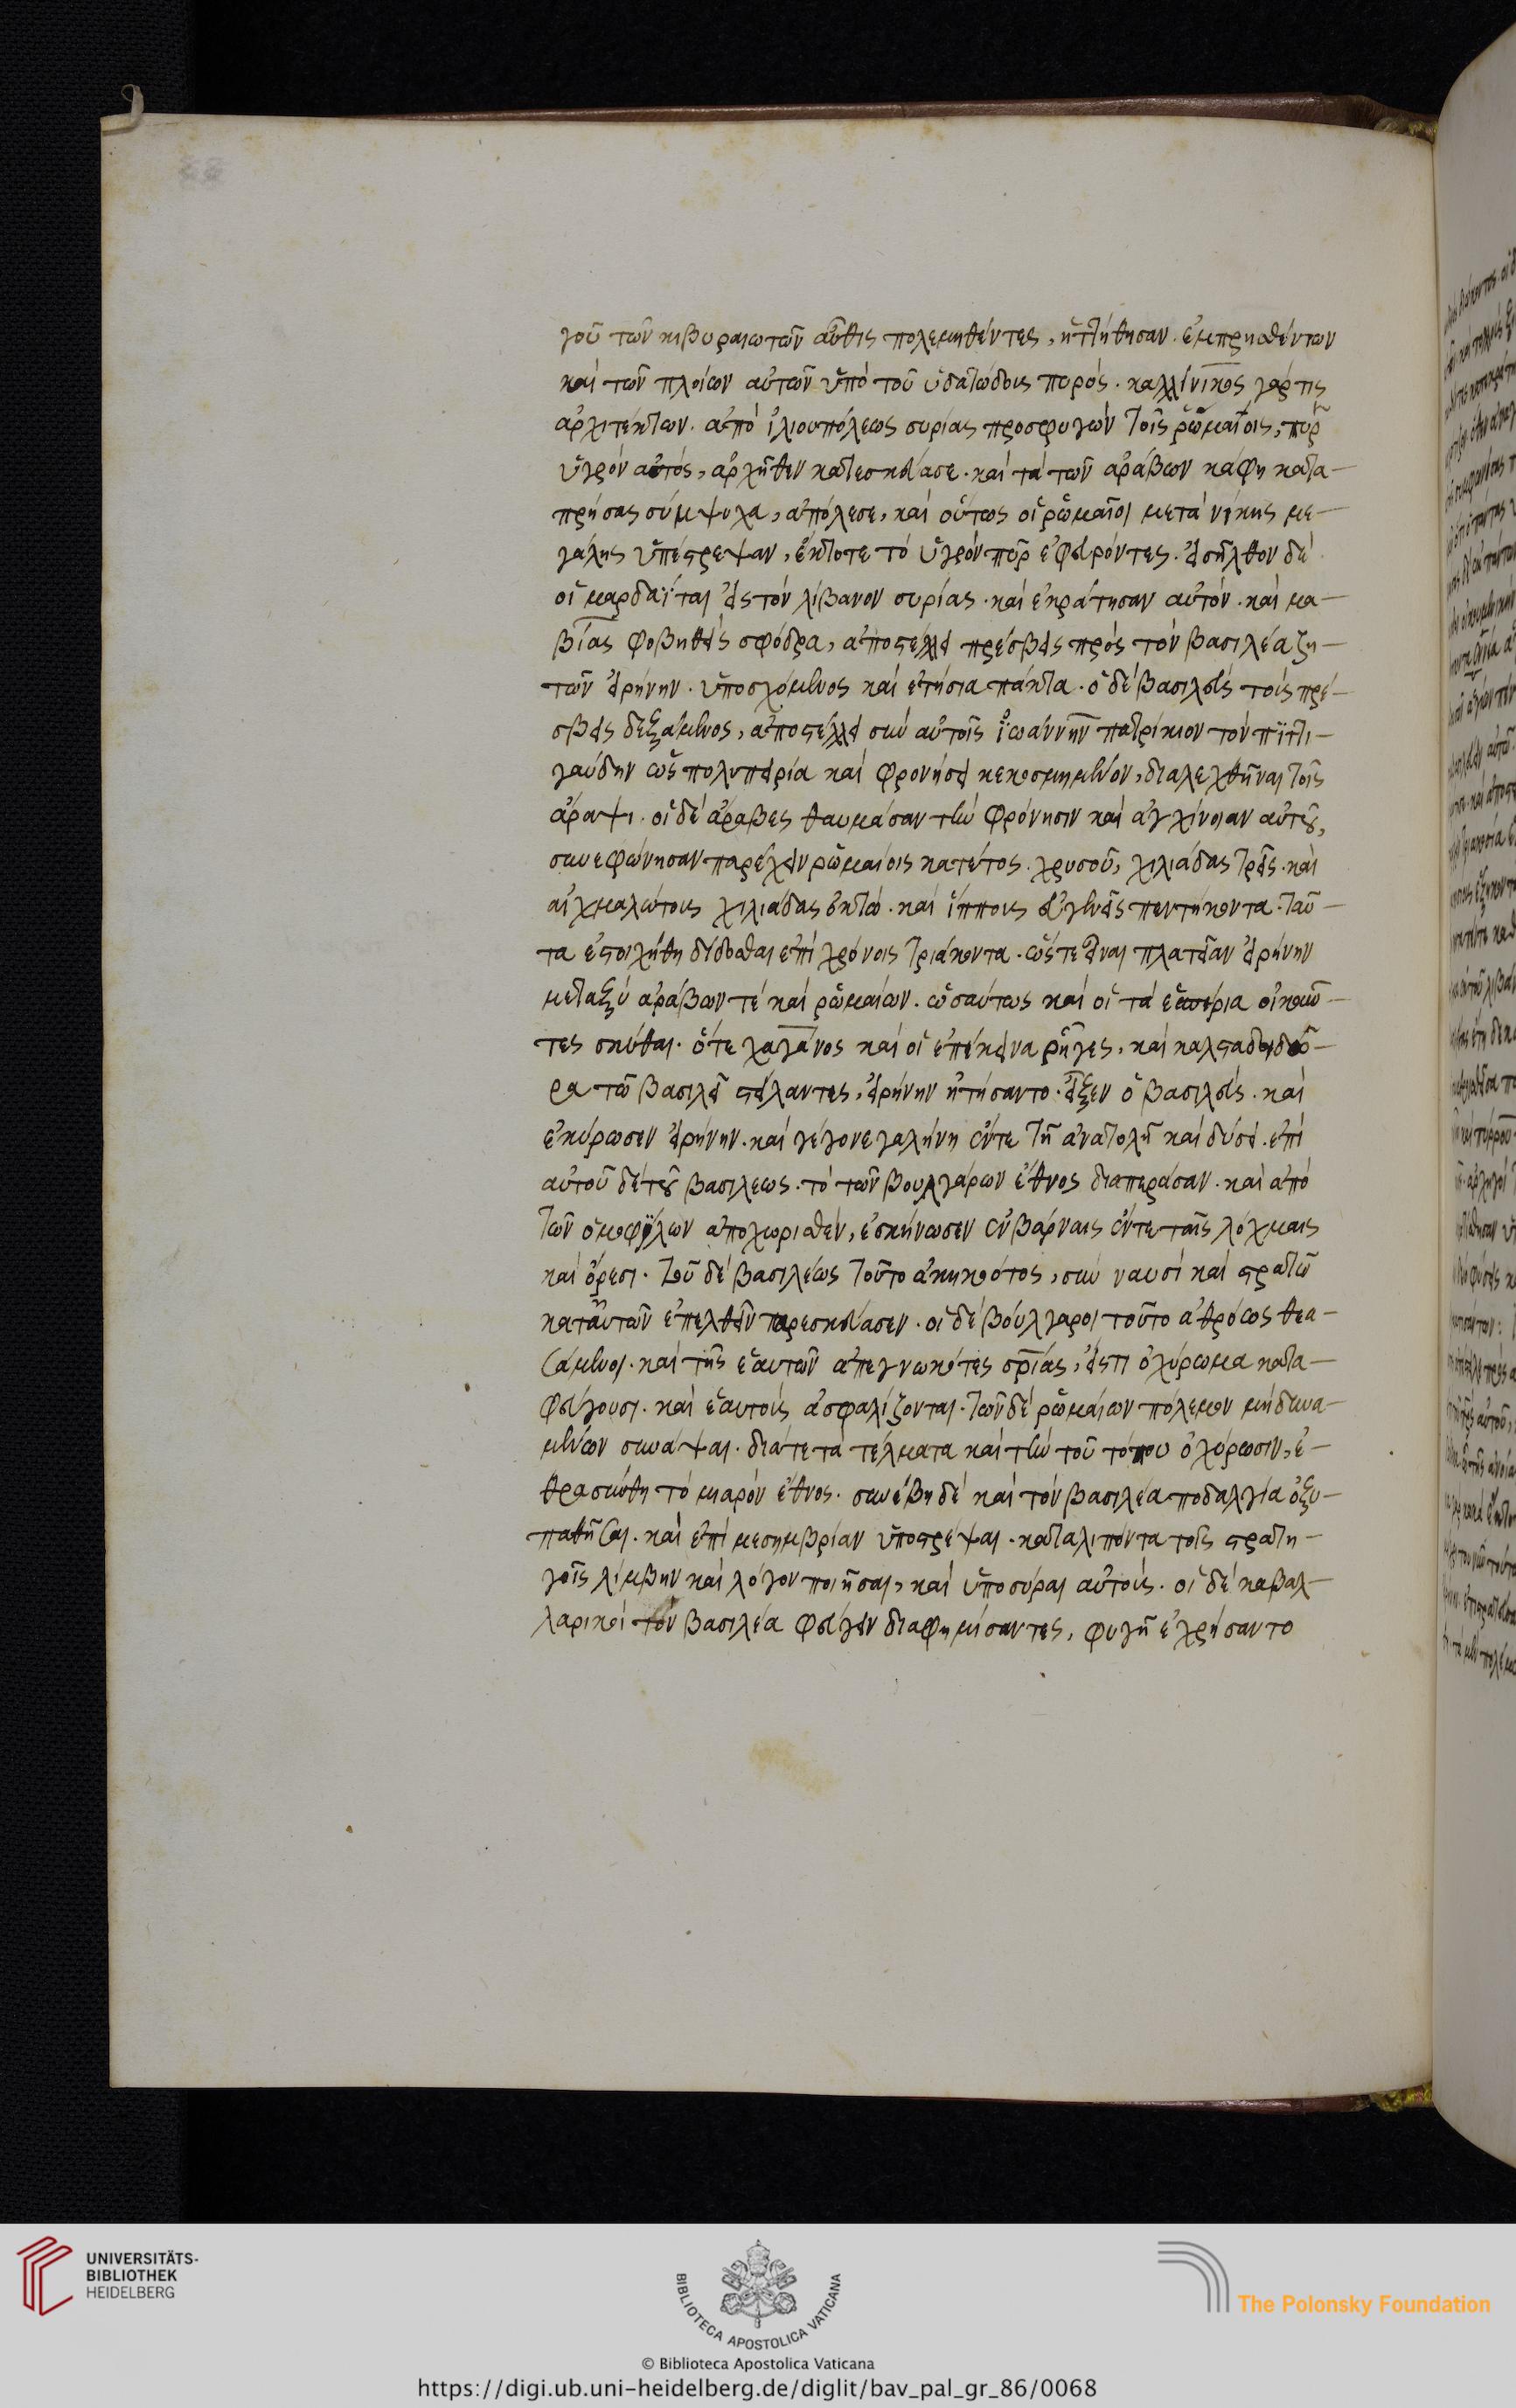 γοῦ τῶν κιβυραιωτῶν αὖθις πολεμηθέντες, ἡττήθησαν. ἐμπρησθέντων
καὶ τῶν πλοίων αὐτῶν ὑπὸ τοῦ ὑδατώδους πυρός. καλλίνικος γάρ τις
ἀρχιτέκτων. ἀπὸ ἡλιουπόλεως συρίας προσφυγὼν τοῖς ῥωμαίοις, πῦρ
ὑγρὸν αὐτὸς, ἀρχῆθεν κατεσκεύασε. καὶ τὰ τῶν ἀράβων σκάφη κατα-
πρήσας σύμψυχα, ἀπόλεσε, καὶ οὕτως οἱ ῥωμαῖοι μετὰ νίκης με-
γάλης ὑπέστρεψαν, ἔκτοτε τὸ ὑγρὸν πῦρ ἐφευρόντες. εἰσῆλθον δὲ
οἱ μαρδαΐται εἰς τὸν λίβανον συρίας. καὶ ἐκράτησαν αὐτόν. καὶ μα-
βίας φοβηθεὶς σφόδρα, ἀποστέλλει πρέσβεις πρὸς τὸν βασιλέα ζη-
τῶν εἰρήνην. ὑποσχόμενος καὶ ἐτήσια πάκτα. ὁ δὲ βασιλεὺς τοὺς πρέ-
σβεις δεξάμενος, ἀποστέλλει σὺν αὐτοῖς ἰωάννην πατρίκιον τὸν πϊτζι-
γαύδην ὡς πολυπειρία καὶ φρονήσει κεκοσμημένον, διαλεχθῆναι τοῖς
ἄραψι. οἱ δὲ ἄραβες θαυμάσαν τὴν φρόνησιν καὶ ἀγχίνοιαν αὐτοῦ,
συνεφώνησαν παρέχειν ῥωμαίοις κατέτος. χρυσοῦ, χιλιάδας τρεῖς. καὶ
αἰχμαλώτους χιλιάδας ὀκτώ. καὶ ἵππους εὐγενεῖς πεντήκοντα. ταῦ-
τα ἐστοιχήθη δίδοσθαι ἐπὶ χρόνοις τριάκοντα. ὥστε εἶναι πλατεῖαν εἰρήνην
μεταξὺ ἀράβων τὲ καὶ ῥωμαίων. ὡσαύτως καὶ οἱ τὰ ἑσπέρια οἰκοῦν-
τες σκύθαι. ὅτε χαγάνος καὶ οἱ ἐπέκεινα ῥῆγες, καὶ
τῶ βασιλεῖ στείλαντες, εἰρήνην ᾐτήσαντο. εἶξεν ὁ βασιλεὺς. καὶ
ἐκύρωσεν εἰρήνην. καὶ γέγονε γαλήνη ἔντε τῆ ἀνατολῆ καὶ δύσει. ἐπὶ
αὐτοῦ δὲ τοῦ βασιλεως. τὸ τῶν βουλγάρων ἔθνος διαπεράσαν. καὶ ἀπὸ
τῶν ὁμοφύλων ἀποχωρισθὲν, ἐσκήνωσεν ἐν βάρναις ἔντε ταῖς λόχμαις
καὶ ὄρεσι. τοῦ δὲ βασιλέως τοῦτο ἀκηκοότος, σὺν ναυσὶ καὶ στρατῶ
κατ' αὐτῶν ἐπελθεῖν παρεσκεύασεν. οἱ δὲ βούλγαροι τοῦτο ἀθρόως θεα-
σάμενοι. καὶ τῆς ἑαυτῶν ἀπεγνωκότες σρίας, εἴς τι ὀχύρωμα κατα-
φεύγουσι. καὶ ἑαυτοὺς ἀσφαλίζονται. τῶν δὲ ῥωμαίων πόλεμον μὴ δυνα-
μένων συνάψαι. διάτε τὰ τέλματα καὶ τὴν τοῦ τόπου ὀχύρωσιν, ἐ-
θρασύνθη τὸ μιαρὸν ἔθνος. συνέβη δὲ καὶ τὸν βασιλέα ποδαλγία ὀξυ-
παθῆσαι. καὶ ἐπὶ μεσημβρίαν ὑποστρέψαι. καταλιπόντα τοῖς στρατη-
γοῖς λίμβην καὶ λόγον ποιῆσαι, καὶ ὑποσύραι αὐτούς. οἱ δὲ καβαλ-
λαρικοὶ τὸν βασιλέα φεύγειν διαφημίσαντες, φυγῆ ἐχρήσαντο
UNIVERSITÄTS-
BIBLIOTHEK
HEIDELBERG
BIBLIOTECA APOSTOLICA VATICANA
The Polonsky Foundation
© Biblioteca Apostolica Vaticana
https://digi.ub.uni-heidelberg.de/diglit/bav_pal_gr_86/0068